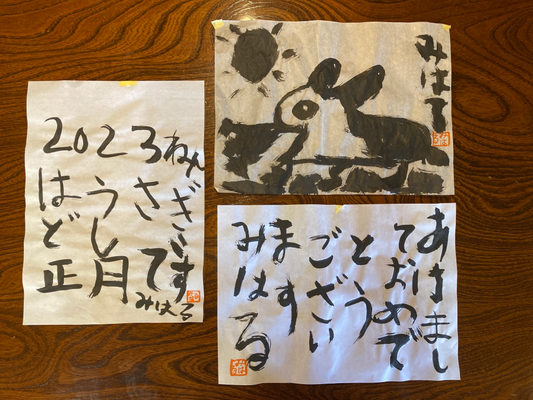 2023ねん
はうさぎ
どしです
正月
みはる
みはる
あけまし
ておめで
とう
ござい
ます
みはる